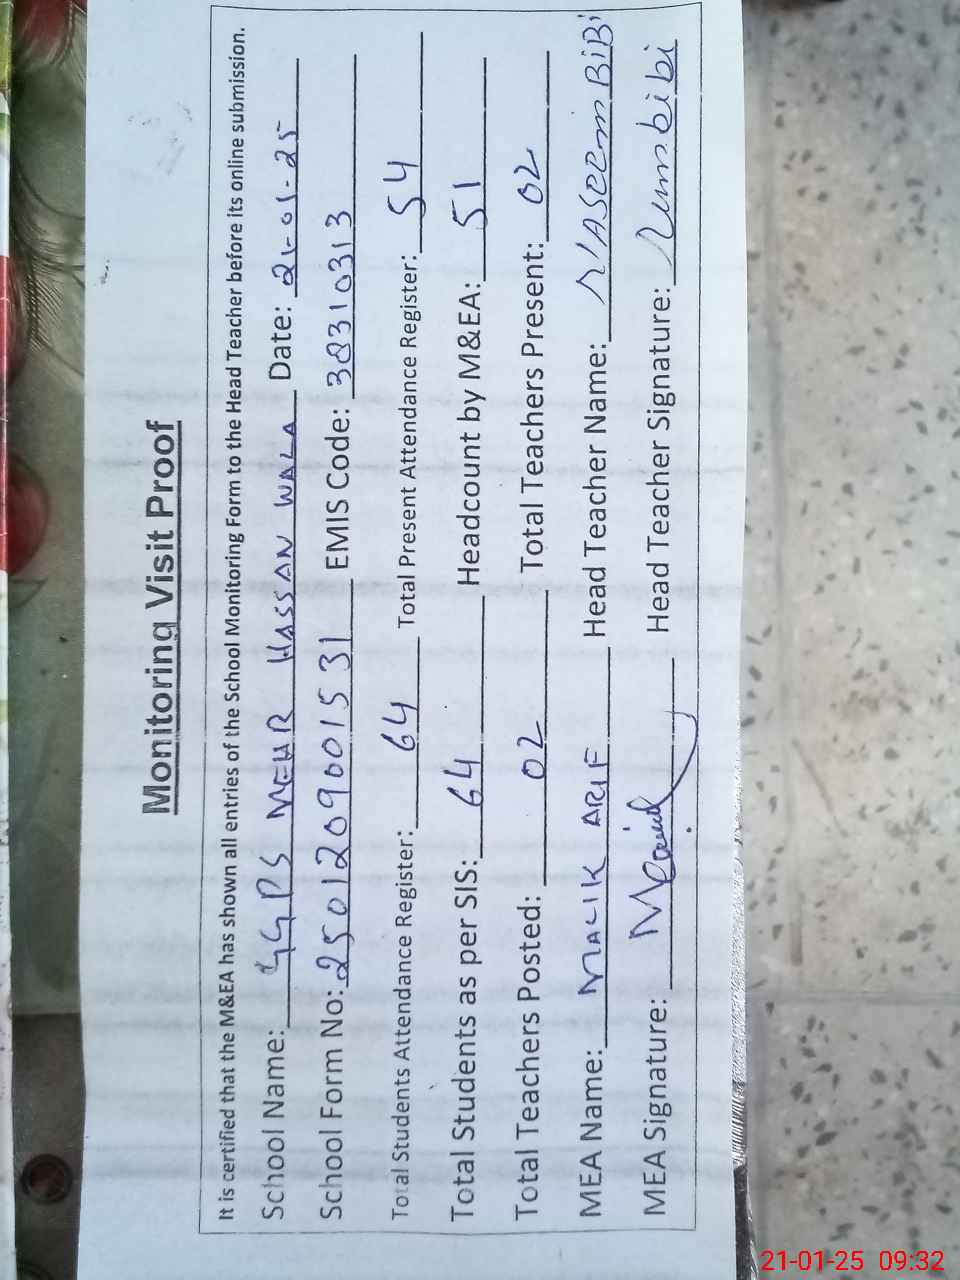 Monitoring Visit Proof
It is certified that the M&EA has shown all entries of the School Monitoring Form to the Head Teacher before its online submission.
School Name: GGPS MEHR HASSAN WALA Date: 21-01-25
School Form No: 2501209001531 EMIS Code: 38310313
Total Students Attendance Register: 64 Total Present Attendance Register: 54
Total Students as per SIS: 64 Headcount by M&EA: 51
Total Teachers Posted: 02 Total Teachers Present: 02
MEA Name: MALIK ARIF Head Teacher Name: NASEEM BIBI
MEA Signature: Head Teacher Signature: bibi
21-01-25 09:32